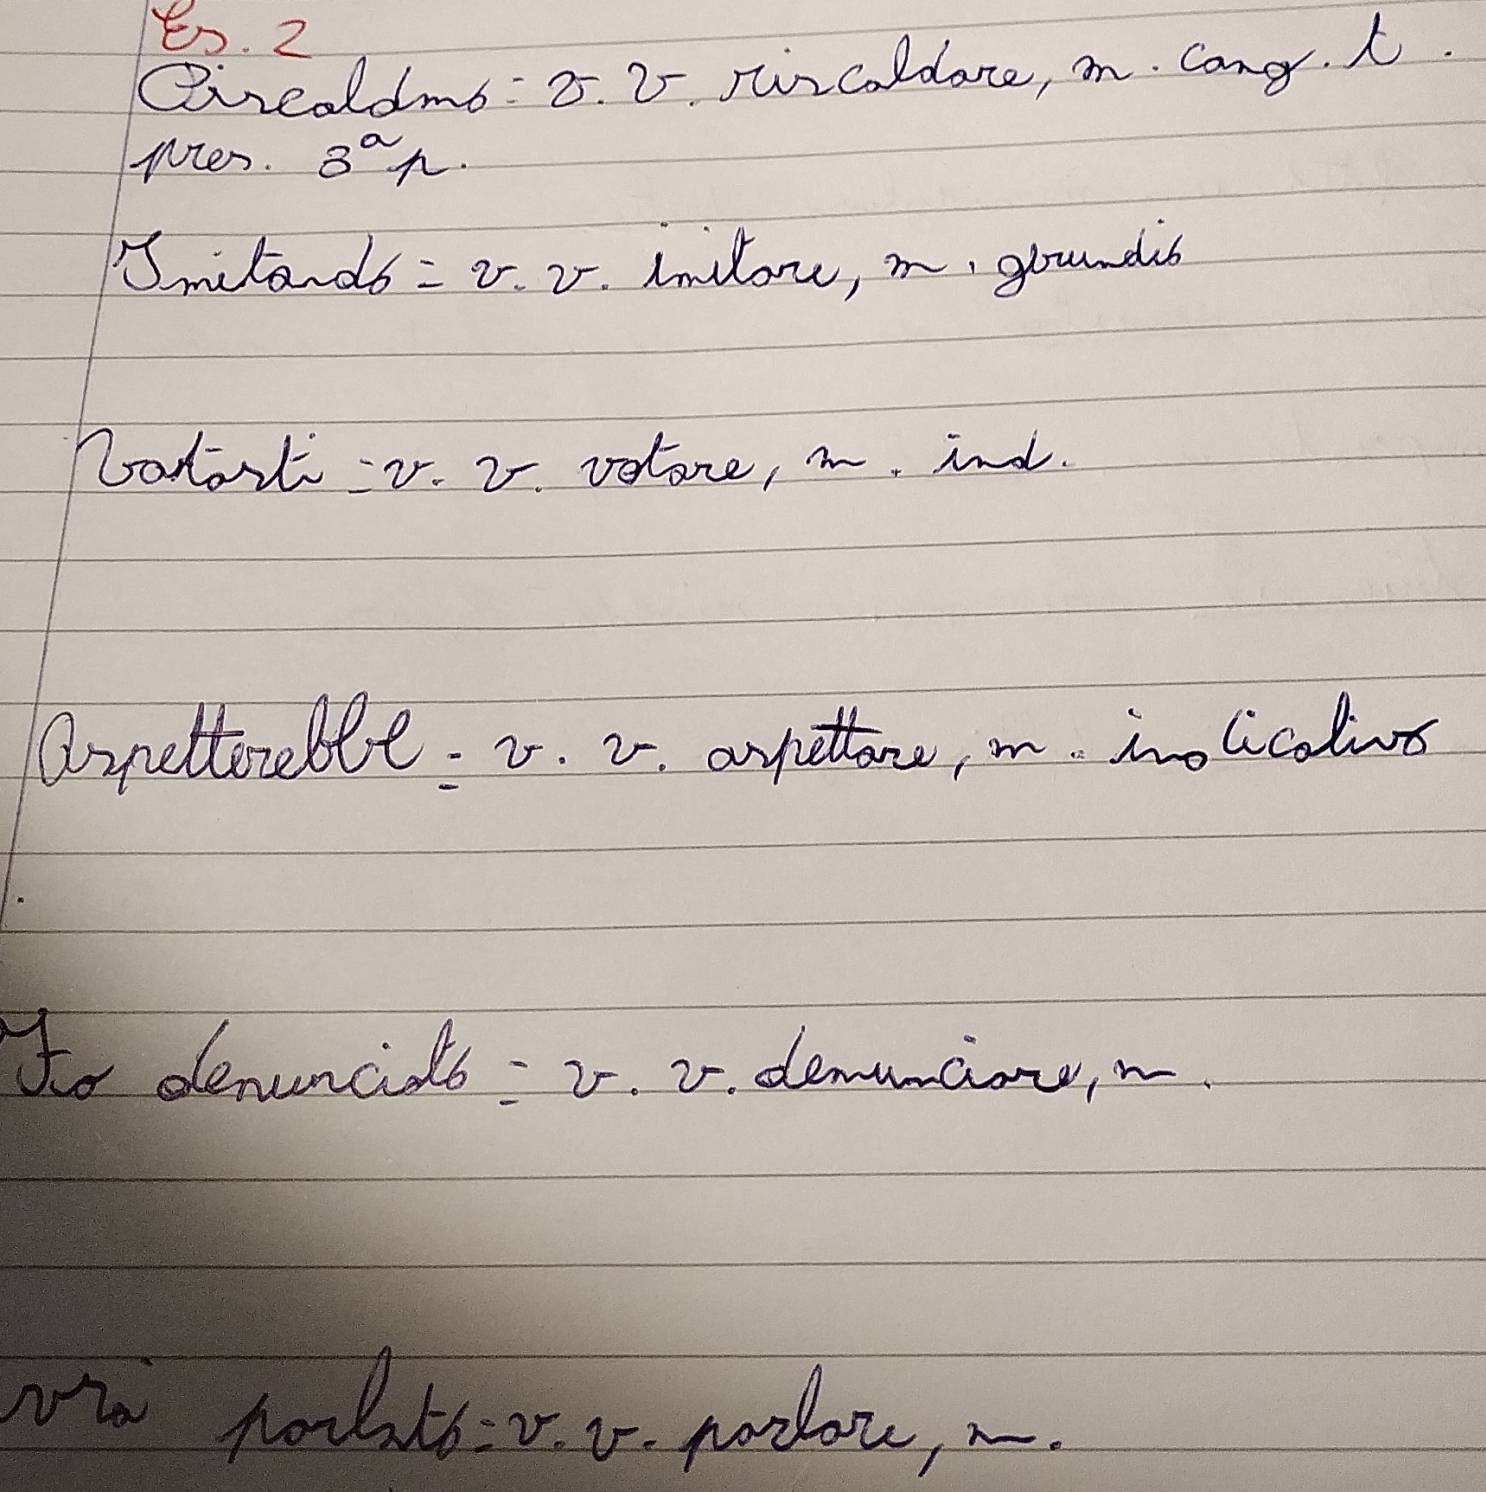 Es. 2
Riscaldino = v. v. riscaldare, m. cong. t.
pres. 3ª p.
Imitando = v. v. imitare, m. gerundio
Votasti = v. v. votare, m. ind.
Aspetterebbe = v. v. aspettare, m. indicativo
denunciato = v. v. denunciare, m.
parlato = v. v. parlare, m.